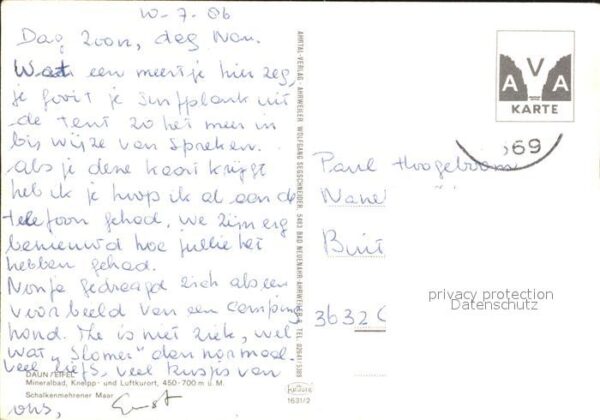 10-7-86
Dag Zoon, dag Nan.
Wat een meertje hier zeg,
je gooit je surfplank uit
de tent zo het meer in
bij wijze van spreken.
Als je deze kaart krijgt
heb ik je hoop ik al aan de
telefoon gehad, we zijn erg
benieuwd hoe jullie het
hebben gehad.
gedraagd zich als een
voorbeeld van een camping
hond. Ze is niet ziek, wel
wat "slomer" dan normaal.
veel liefs, veel kusjes van
ons,
DAUN/EIFEL
Mineralbad, Kneipp- und Luftkurort, 450-700 m ü. M.
Schalkenmehrener Maar
AHRTAL-VERLAG · AHRWEILER · WOLFGANG SEGSCHNEIDER, 5483 BAD NEUENAHR-AHRWEILER 1, TEL. 02641/5389
1631/2
AVA
KARTE
569
Paul Hoogeboom
Nane
Buit
3632
privacy protection
Datenschutz